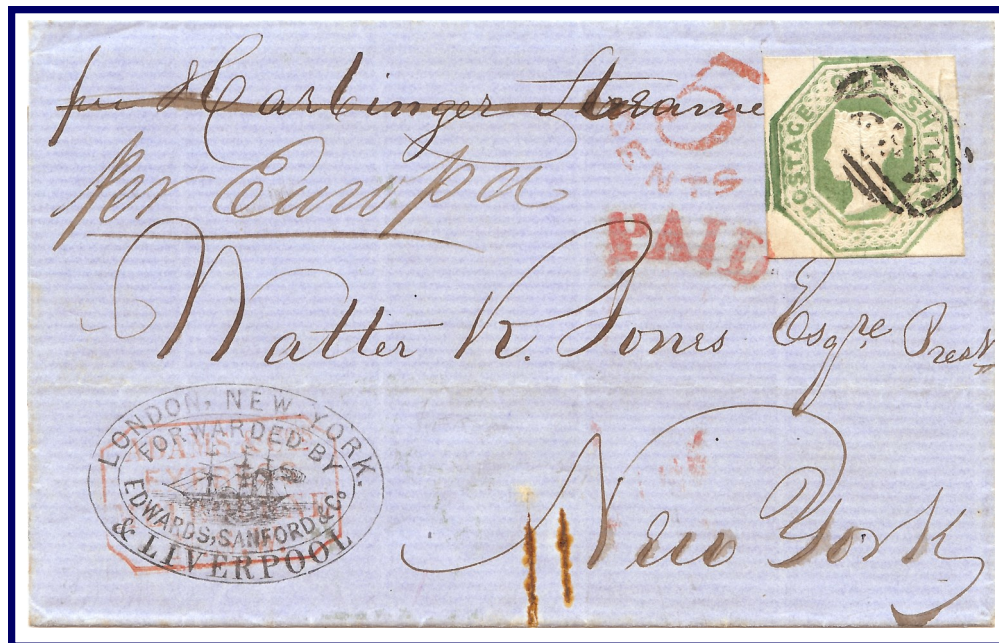 per Harbinger Steamer
per Europa
5
CENTS
PAID
POSTAGE ONE SHILLING
Walter R. Jones Esqre Prest
New York
LONDON, NEW YORK.
FORWARDED BY
EDWARDS, SANFORD & Co
& LIVERPOOL
EXPRESS